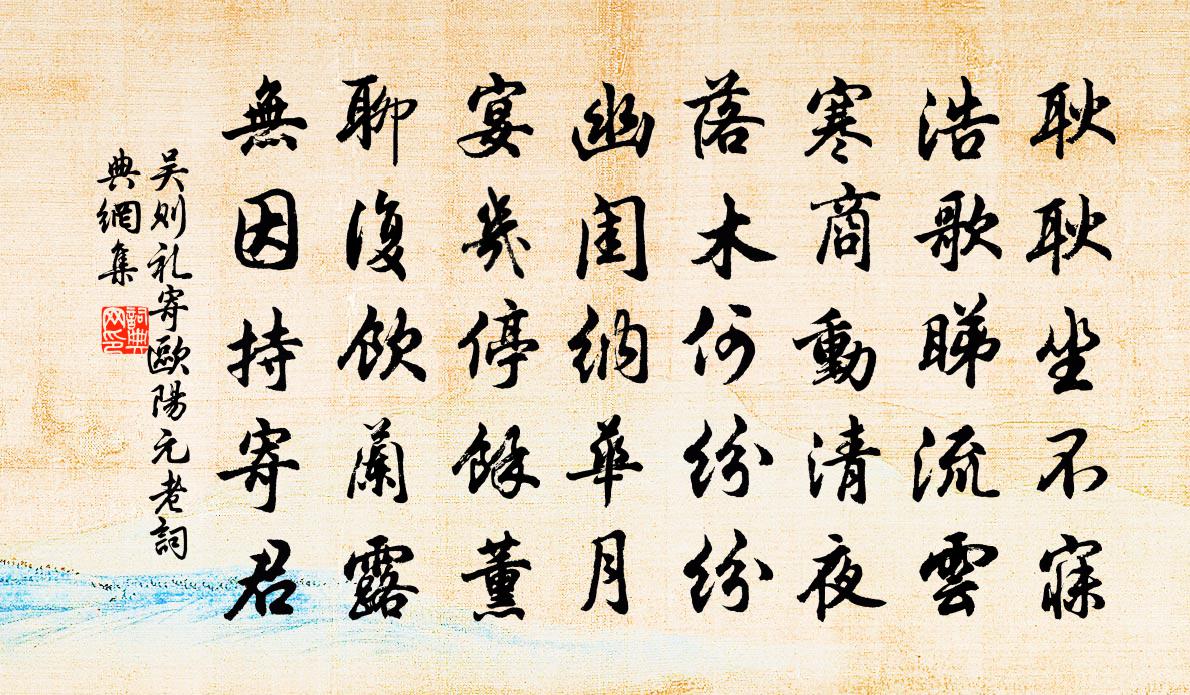 耿耿坐不寐
浩歌睇流雲
寒商動清夜
落木何紛紛
幽閨納華月
宴幾停餘薰
聊復飲蘭露
無因持寄君
吴则礼寄歐陽元老詞
典網集
詞典
网印